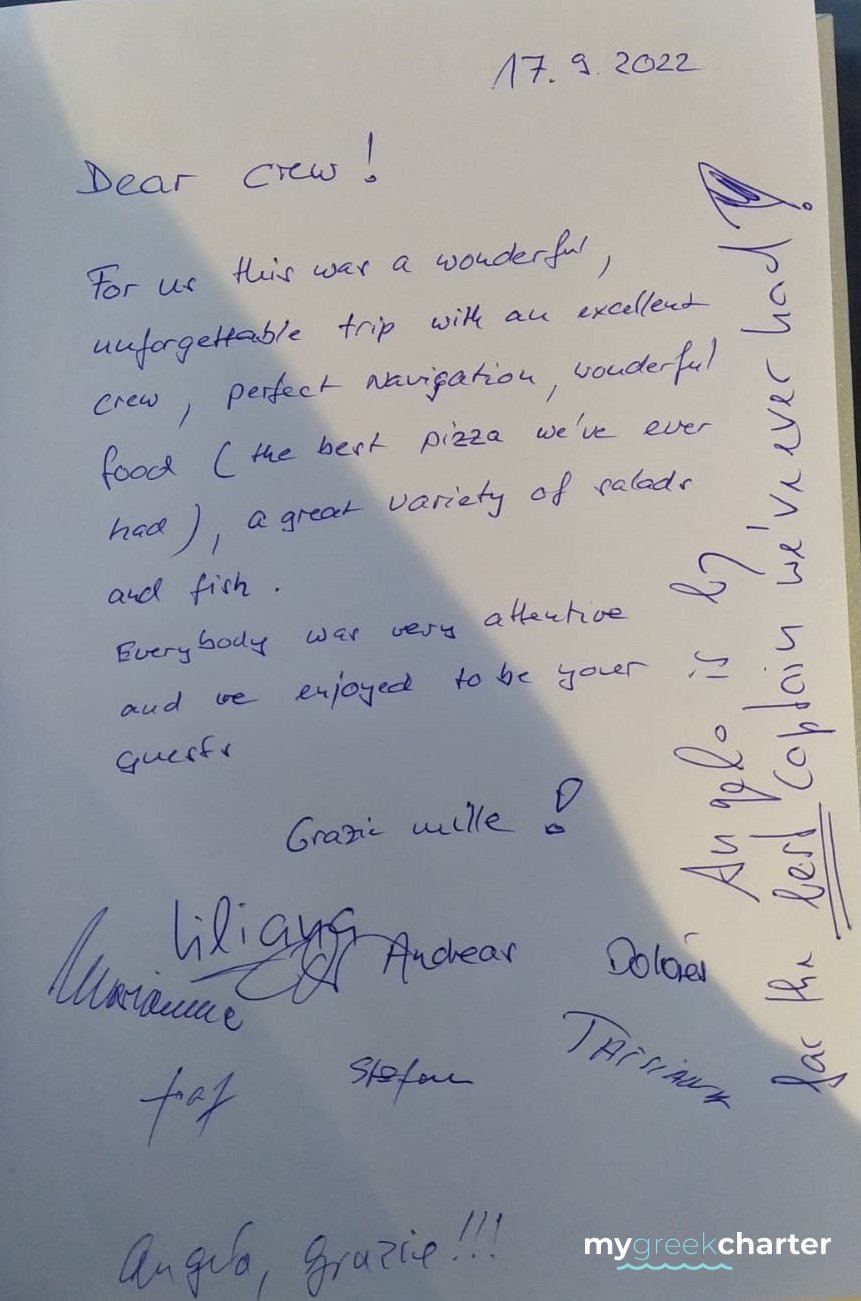 17. 9. 2022
Dear crew!
For us this was a wonderful,
unforgettable trip with an excellent
crew, perfect navigation, wonderful
food (the best pizza we've ever
had), a great variety of salads
and fish.
Everybody was very attentive
and we enjoyed to be your
guests
Grazie mille!
Liliana
Marianne
Andreas
Stefan
Angelo, grazie!!!
Angelo is by
far the best captain we've ever had!
mygreekcharter